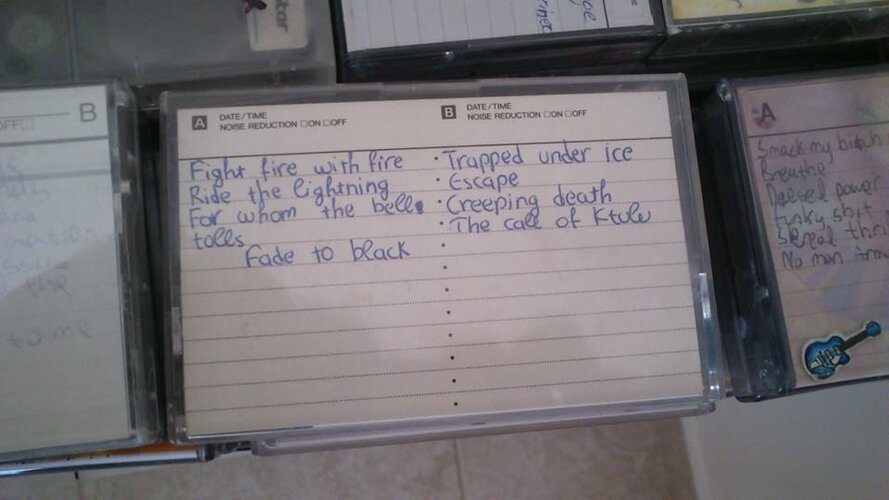 A DATE/TIME
NOISE REDUCTION ☐ON ☐OFF
B DATE/TIME
NOISE REDUCTION ☐ON ☐OFF
Fight fire with fire
Ride the lightning
For whom the bell
tolls
Fade to black
· Trapped under ice
· Escape
· Creeping death
· The call of Ktulu
B
to me
A
Smack my bitch
Breathe
Diesel power
funky shit
Serial thr
No man Arm